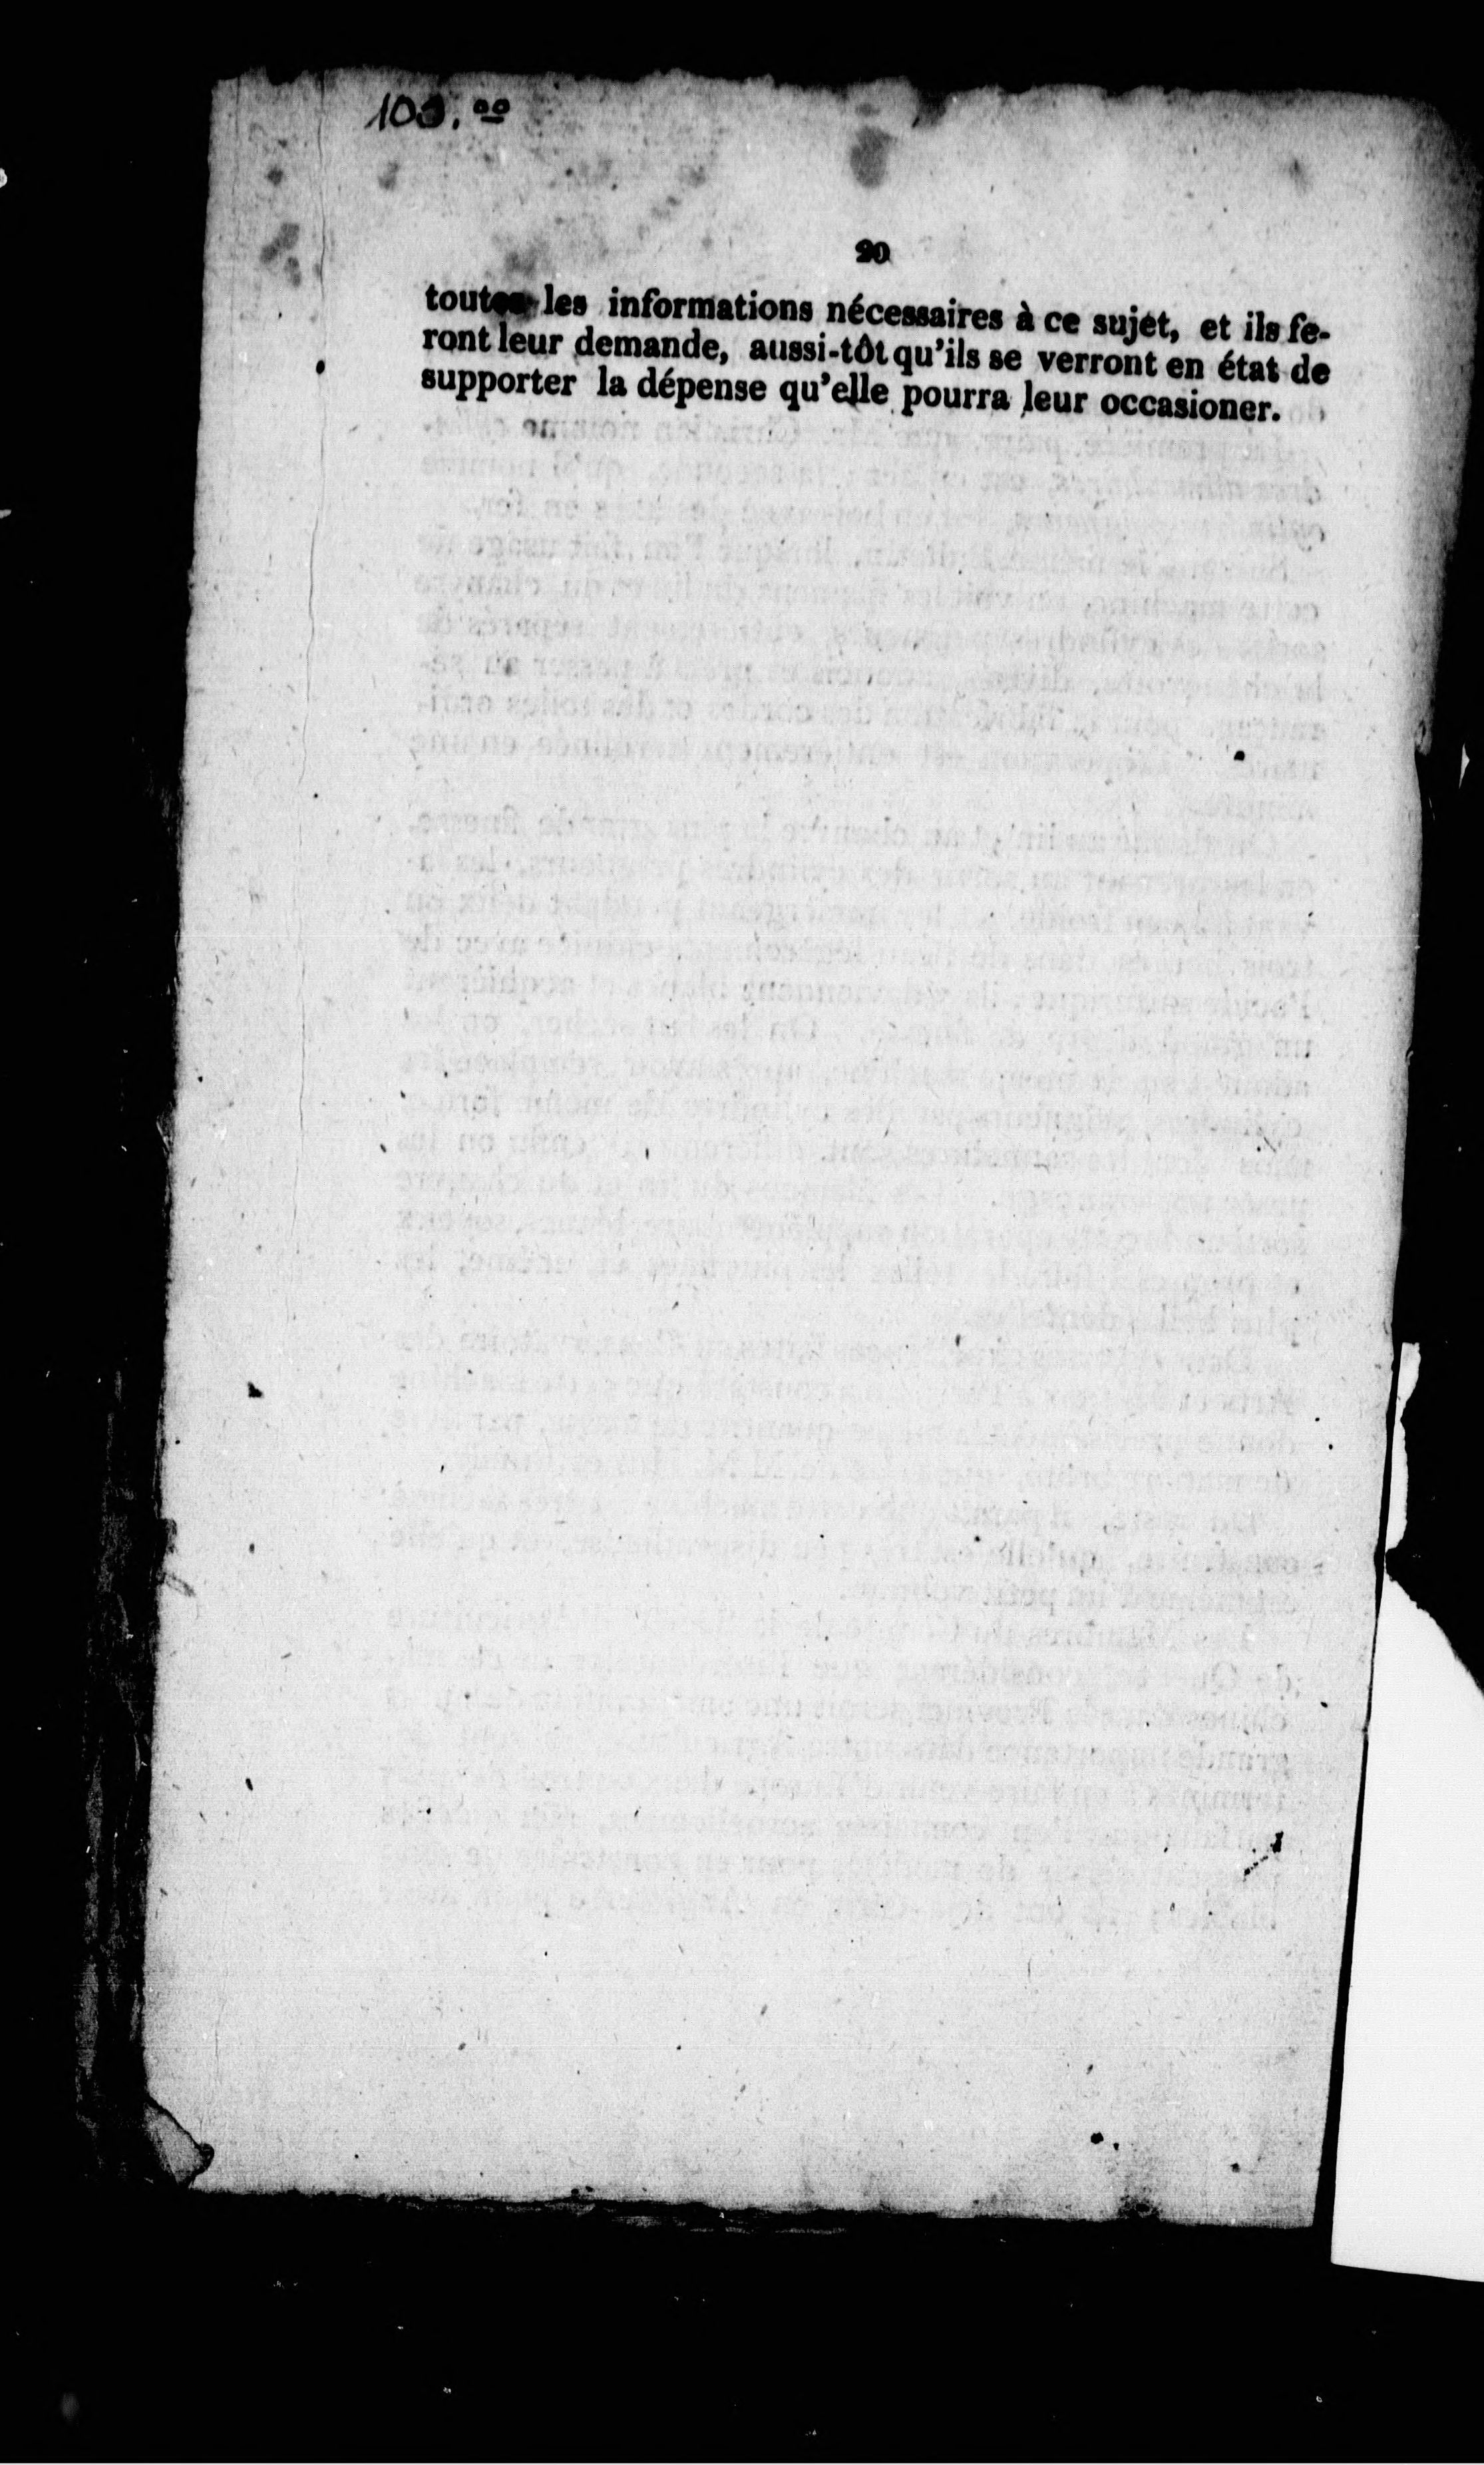 103. oo
20
toutes les informations nécessaires à ce sujet, et ils fe-
ront leur demande, aussi-tôt qu'ils se verront en état de
supporter la dépense qu'elle pourra leur occasioner.